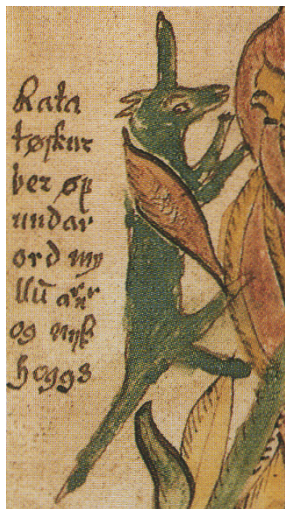 Rata
tøskur
ber øf
undar
ord my
llū arnr
og nijk
hoggs